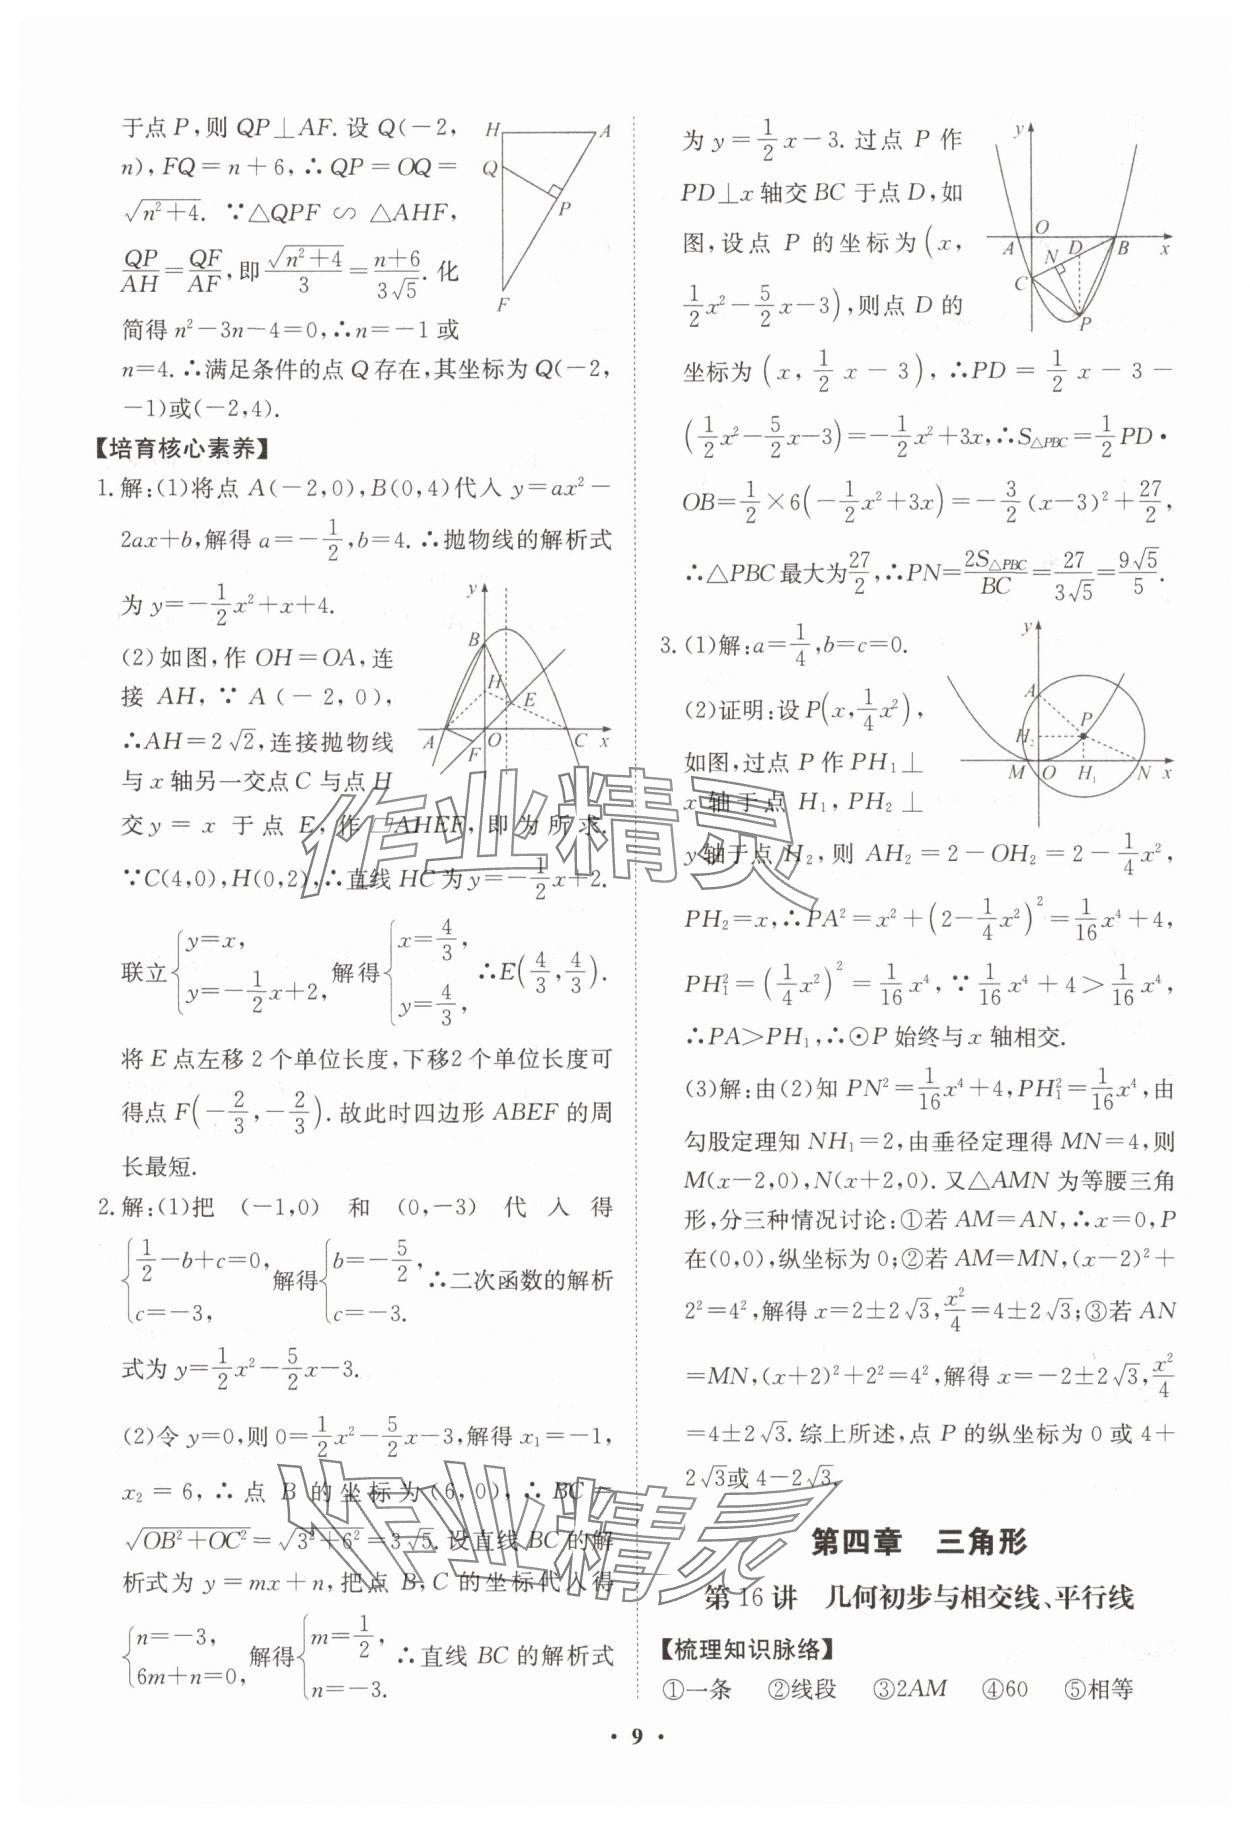 于点P,则QP⊥AF.设Q(-2,
n),FQ=n+6,∴QP=OQ=
√(n²+4). ∵△QPF∽△AHF,
QP/AH=QF/AF,即√(n²+4)/3=(n+6)/(3√5).化
简得n²-3n-4=0,∴n=-1或
n=4.∴满足条件的点Q存在,其坐标为Q(-2,
-1)或(-2,4).
H A Q P F
【培育核心素养】
1.解:(1)将点A(-2,0),B(0,4)代入y=ax²-
2ax+b,解得a=-1/2,b=4.∴抛物线的解析式
为y=-1/2x²+x+4.
(2)如图,作OH=OA,连
接AH,∵A(-2,0),
∴AH=2√2,连接抛物线
与x轴另一交点C与点H
交y=x于点E,作▱AHEF,即为所求.
y B H E A F O C x
∵C(4,0),H(0,2),∴直线HC为y=-1/2x+2.
联立{y=x, y=-1/2x+2,解得{x=4/3, y=4/3, ∴E(4/3,4/3).
将E点左移2个单位长度,下移2个单位长度可
得点F(-2/3,-2/3).故此时四边形ABEF的周
长最短.
2.解:(1)把(-1,0)和(0,-3)代入得
{1/2-b+c=0, c=-3,解得{b=-5/2, c=-3. ∴二次函数的解析
式为y=1/2x²-5/2x-3.
(2)令y=0,则0=1/2x²-5/2x-3,解得x₁=-1,
x₂=6,∴点B的坐标为(6,0),∴BC=
√(OB²+OC²)=√(3²+6²)=3√5.设直线BC的解
析式为y=mx+n,把点B,C的坐标代入得
{n=-3, 6m+n=0,解得{m=1/2, n=-3. ∴直线BC的解析式
为y=1/2x-3.过点P作
PD⊥x轴交BC于点D,如
图,设点P的坐标为(x,
1/2x²-5/2x-3),则点D的
y O A N D B x C P
坐标为(x,1/2x-3),∴PD=1/2x-3-
(1/2x²-5/2x-3)=-1/2x²+3x,∴S△PBC=1/2PD·
OB=1/2×6(-1/2x²+3x)=-3/2(x-3)²+27/2,
∴△PBC最大为27/2,∴PN=2S△PBC/BC=27/(3√5)=9√5/5.
3.(1)解:a=1/4,b=c=0.
(2)证明:设P(x,1/4x²),
如图,过点P作PH₁⊥
x轴于点H₁,PH₂⊥
y A P H₂ M O H₁ N x
y轴于点H₂,则AH₂=2-OH₂=2-1/4x²,
PH₂=x,∴PA²=x²+(2-1/4x²)²=1/16x⁴+4,
PH₁²=(1/4x²)²=1/16x⁴,∵1/16x⁴+4>1/16x⁴,
∴PA>PH₁,∴⊙P始终与x轴相交.
(3)解:由(2)知PN²=1/16x⁴+4,PH₁²=1/16x⁴,由
勾股定理知NH₁=2,由垂径定理得MN=4,则
M(x-2,0),N(x+2,0).又△AMN为等腰三角
形,分三种情况讨论:①若AM=AN,∴x=0,P
在(0,0),纵坐标为0;②若AM=MN,(x-2)²+
2²=4²,解得x=2±2√3,x²/4=4±2√3;③若AN
=MN,(x+2)²+2²=4²,解得x=-2±2√3,x²/4
=4±2√3.综上所述,点P的纵坐标为0或4+
2√3或4-2√3.
第四章 三角形
第16讲 几何初步与相交线、平行线
【梳理知识脉络】
①一条 ②线段 ③2AM ④60 ⑤相等
· 9 ·
作业精灵
作业精灵